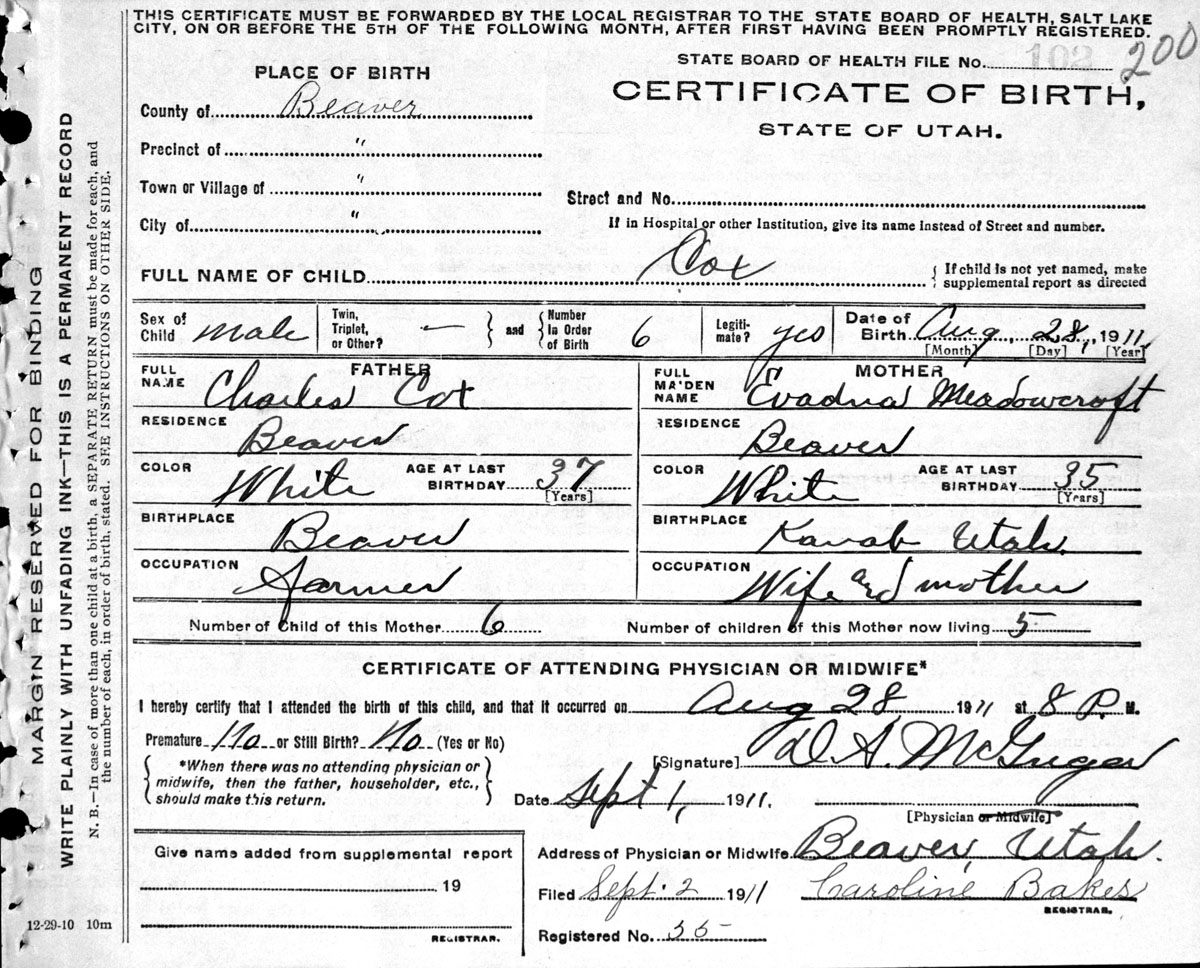 THIS CERTIFICATE MUST BE FORWARDED BY THE LOCAL REGISTRAR TO THE STATE BOARD OF HEALTH, SALT LAKE
CITY, ON OR BEFORE THE 5TH OF THE FOLLOWING MONTH, AFTER FIRST HAVING BEEN PROMPTLY REGISTERED.
STATE BOARD OF HEALTH FILE No. 102 200
PLACE OF BIRTH
CERTIFICATE OF BIRTH,
STATE OF UTAH.
County of Beaver
Precinct of "
Town or Village of "
City of "
Street and No.
If in Hospital or other Institution, give its name instead of Street and number.
FULL NAME OF CHILD Cox { If child is not yet named, make
supplemental report as directed
Sex of Child male Twin, Triplet, or Other? — } and { Number in Order of Birth 6 Legiti-mate? yes Date of Birth Aug 28, 1911
[Month] [Day] [Year]
FATHER MOTHER
FULL NAME Charles Cox FULL MAIDEN NAME Evadna Meadowcroft
RESIDENCE Beaver RESIDENCE Beaver
COLOR White AGE AT LAST BIRTHDAY 37 [Years] COLOR White AGE AT LAST BIRTHDAY 35 [Years]
BIRTHPLACE Beaver BIRTHPLACE Kanab Utah.
OCCUPATION Farmer OCCUPATION Wife and mother
Number of Child of this Mother 6 Number of children of this Mother now living 5
CERTIFICATE OF ATTENDING PHYSICIAN OR MIDWIFE*
I hereby certify that I attended the birth of this child, and that it occurred on Aug 28 1911 at 8 P. M.
Premature No or Still Birth? No (Yes or No)
*When there was no attending physician or
midwife, then the father, householder, etc.,
should make this return.
[Signature] D. A. McGregor
Date Sept 1, 1911.
[Physician or Midwife]
Address of Physician or Midwife Beaver, Utah.
Filed Sept. 2 1911 Caroline Bakes
REGISTRAR.
Registered No. 55
Give name added from supplemental report
19
REGISTRAR.
12-29-10 10m
MARGIN RESERVED FOR BINDING
WRITE PLAINLY WITH UNFADING INK—THIS IS A PERMANENT RECORD
N. B.—In case of more than one child at a birth, a SEPARATE RETURN must be made for each, and
the number of each, in order of birth, stated. SEE INSTRUCTIONS ON OTHER SIDE.